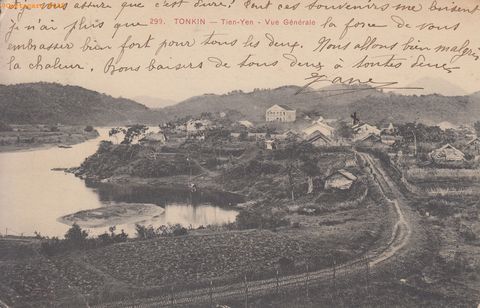 vous assure que c'est dure! Tant ces souvenirs me brisent
je n'ai plus que
la force de vous
299. TONKIN — Tien-Yen - Vue Générale
embrasser bien fort pour tous les deux. Nous allons bien malgré
la chaleur. Bons baisers de tous deux à toutes deux